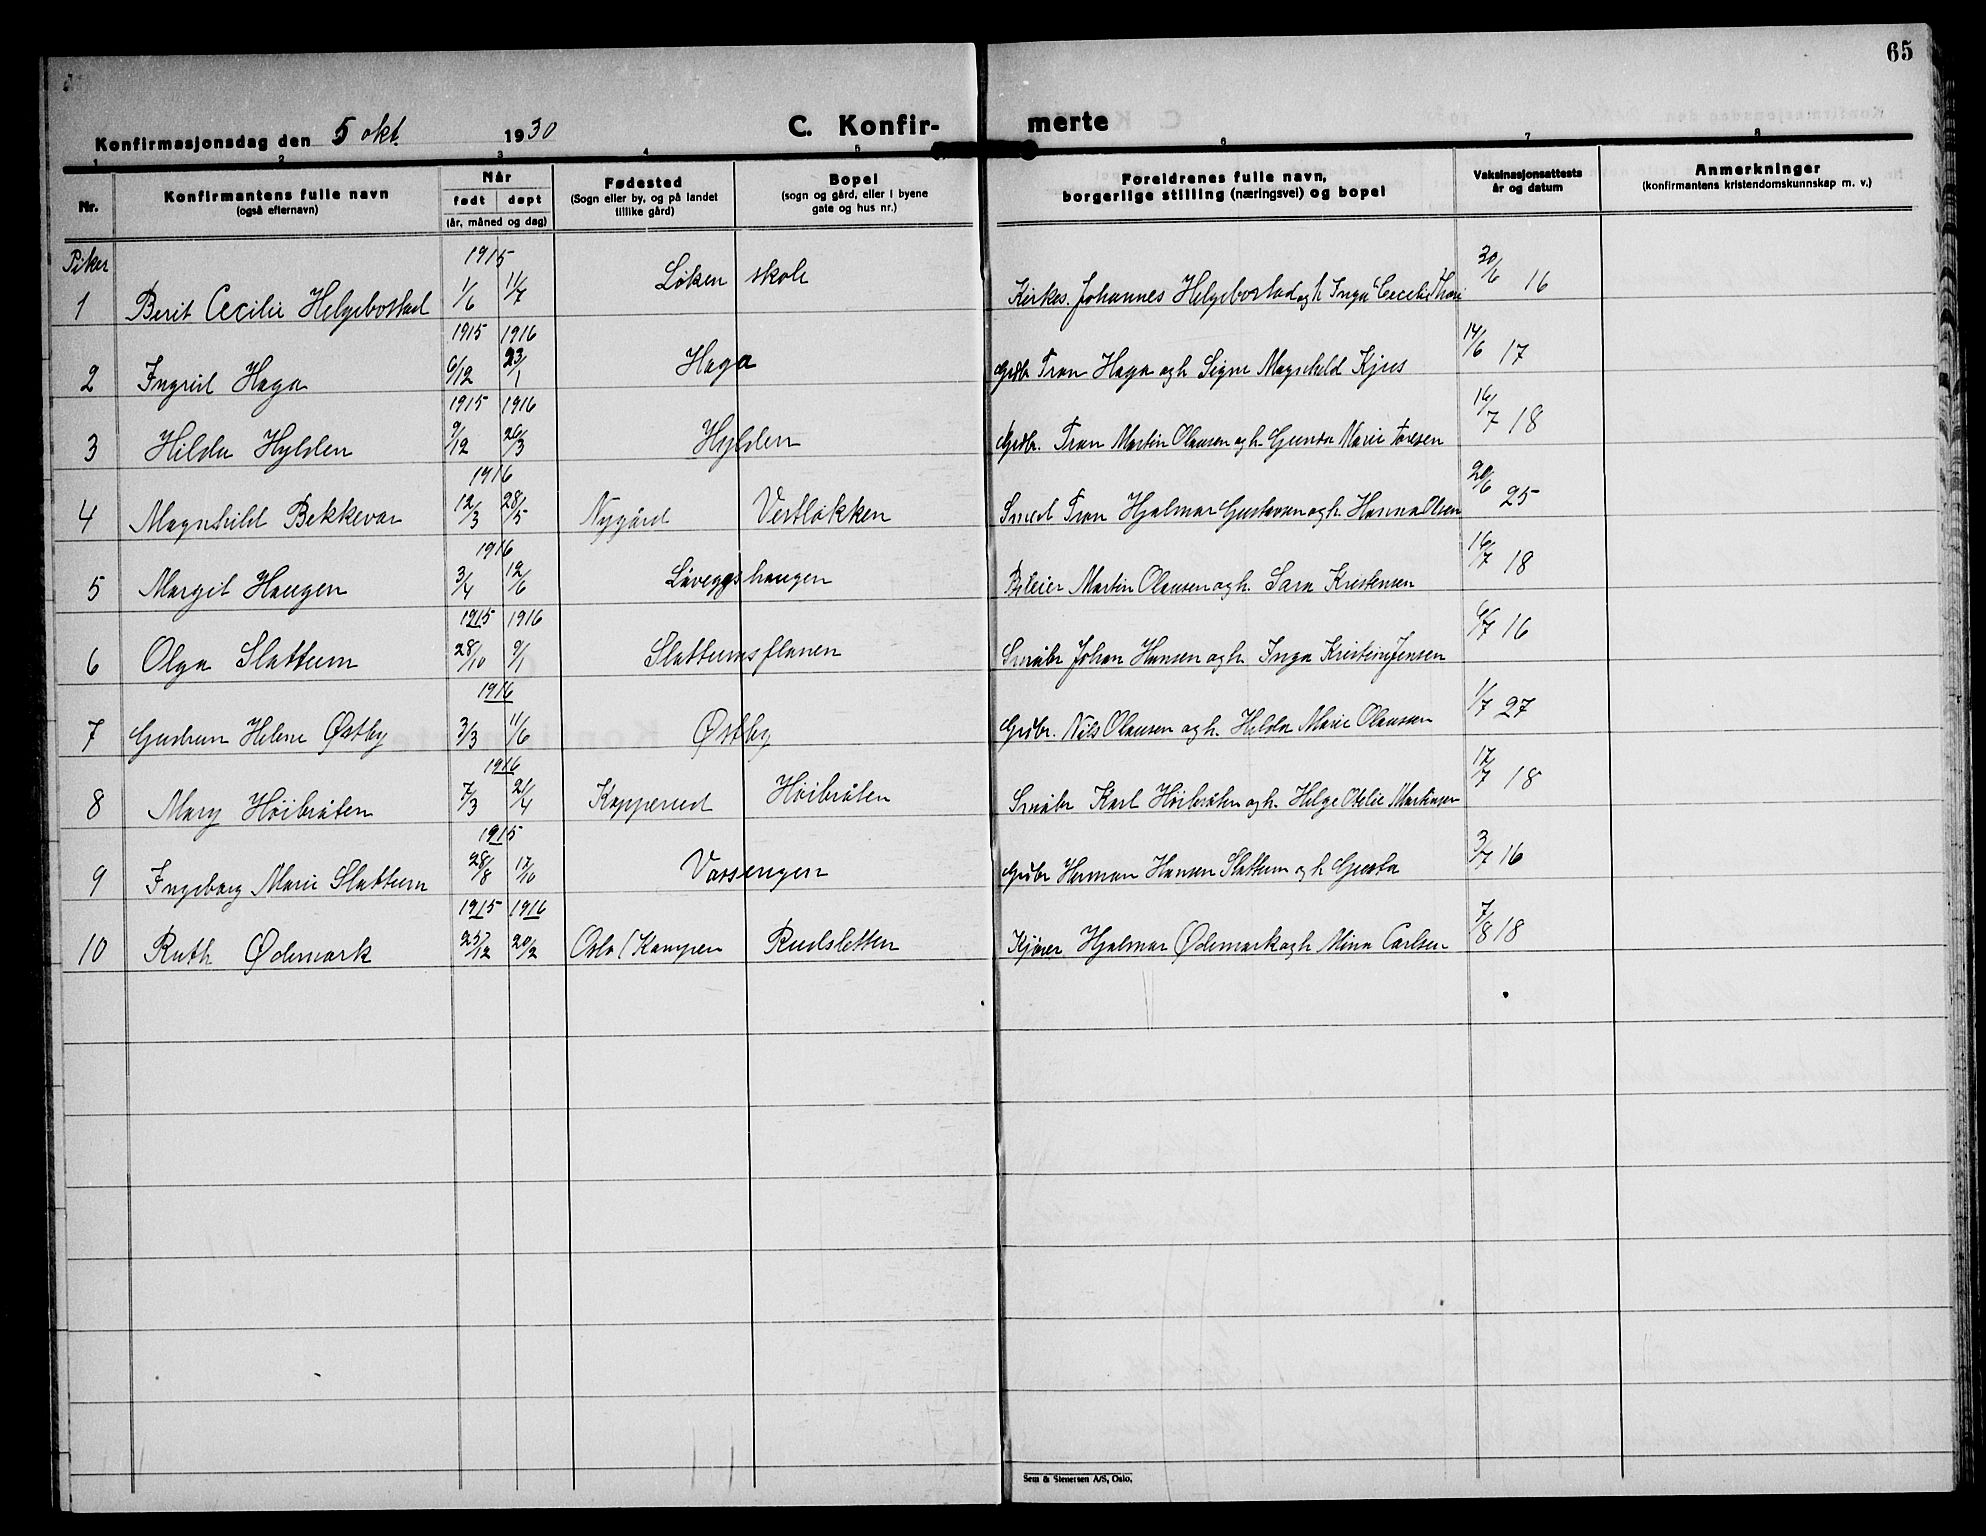 65
Konfirmasjonsdag den 5 okt. 1930 C. Konfir- merte
1 2 3 4 5 6 7 8
Nr. Konfirmantens fulle navn (også efternavn) Når født døpt (år, måned og dag) Fødested (Sogn eller by, og på landet tillike gård) Bopel (sogn og gård, eller i byene gate og hus nr.) Foreldrenes fulle navn, borgerlige stilling (næringsvei) og bopel Vaksinasjonsattests år og datum Anmerkninger (konfirmantens kristendomskunnskap m. v.)
Piker
1915
1 Berit Cecilie Helgebostad 1/6 11/7 Løken skole Kirkes. Johannes Helgebostad og h Inga Cecilie 30/6 16
1915 1916
2 Ingrid Haga 6/12 23/1 Haga Grdbr Tron Haga og h Signe Magnhild Kjus 14/6 17
1915 1916
3 Hilda Hylden 9/12 26/3 Hylden Grdbr. Tron Martin Olausen og h. Gunda Marie 16/7 18
1916
4 Magnhild Bekkevar 12/3 28/5 Nygård Vestløkken Smed Tron Hjalmar Gustavsen og h. Hanna Olsen 20/6 25
1916
5 Margit Haugen 3/4 12/6 Låveggshaugen Martin Olausen og h. Sara Kristensen 16/7 18
1915 1916
6 Olga Slattum 28/10 9/1 Slattumsflanen Småbr Johan Hansen og h. Inga Kristine Jensen 6/7 16
1916
7 Gudrun Helene Østby 3/3 11/6 Østby Grdbr. Nils Olausen og h. Hilda Marie Olaussen 1/7 27
1916
8 Mary Høibråten 7/3 21/4 Kopperud Høibråten Småbr Karl Høibråten og h. Helga Otelie Martinsen 17/7 18
1915
9 Ingeborg Marie Slattum 28/8 17/10 Vassengen Grdbr Herman Hansen Slattum og h Gusta 3/7 16
1915 1916
10 Ruth Ødemark 25/12 20/2 Oslo (Kampen Rudsletten Kjører Hjalmar Ødemark og h Mina Carlsen 7/8 18
Sem & Stenersen A/S, Oslo.